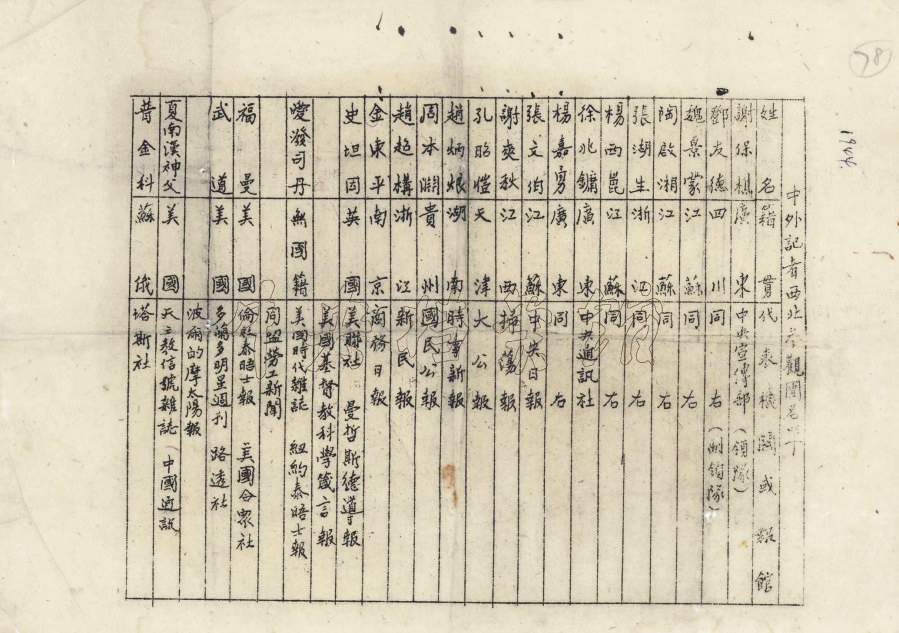 78
1944
中外記者西北參觀團名單
姓名 籍貫 代表機關或報館
謝保樵 廣東 中央宣傳部(領隊)
鄧友德 四川 同右(副領隊)
魏景蒙 江蘇 同右
陶啟湘 江蘇 同右
張湖生 浙江 同右
楊西崑 江蘇 同右
徐兆鏞 廣東 中央通訊社
楊嘉勇 廣東 同右
張文伯 江蘇 中央日報
謝爽秋 江西 掃蕩報
孔昭愷 天津 大公報
趙炳烺 湖南 時事新報
周本淵 貴州 國民公報
趙超構 浙江 新民報
金東平 南京 商務日報
史坦因 英國 美聯社 曼哲斯德導報
美國基督教科學箴言報
愛潑司丹 無國籍 美國時代雜誌 紐約泰晤士報
同盟勞工新聞
福曼 美國 倫敦泰晤士報 美國合眾社
武道 美國 多倫多明星週刊 路透社
波爾的摩太陽報
夏南漢神父 美國 天主教信號雜誌 中國通訊
普金科 蘇俄 塔斯社